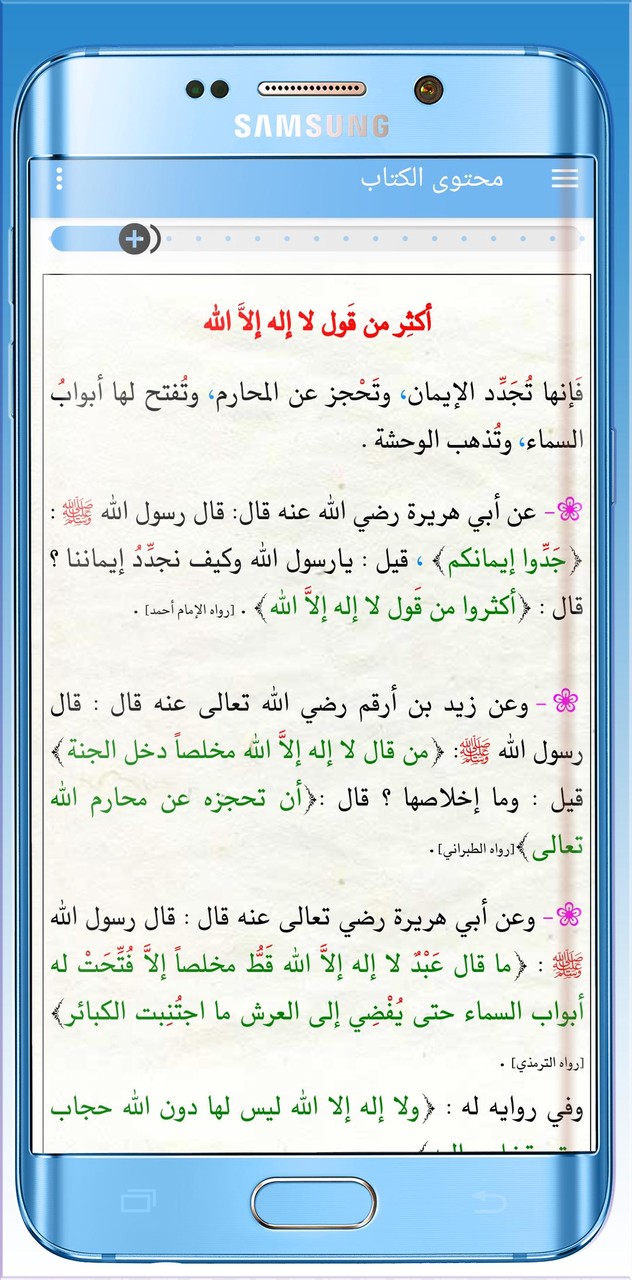 SAMSUNG
محتوى الكتاب
أكثِر من قَول لا إله إلاَّ الله
فَإنها تُجَدِّد الإيمان، وتَحْجز عن المحارم، وتُفتح لها أبوابُ
السماء، وتُذهب الوحشة .
- عن أبي هريرة رضي الله عنه قال: قال رسول الله ﷺ :
﴿جَدِّوا إيمانكم﴾ ، قيل : يارسول الله وكيف نجدِّدُ إيماننا ؟
قال : ﴿أكثروا من قَول لا إله إلاَّ الله﴾ . [رواه الإمام أحمد] .
- وعن زيد بن أرقم رضي الله تعالى عنه قال : قال
رسول الله ﷺ: ﴿من قال لا إله إلاَّ الله مخلصاً دخل الجنة﴾
قيل : وما إخلاصها ؟ قال :﴿أن تحجزه عن محارم الله
تعالى﴾[رواه الطبراني].
- وعن أبي هريرة رضي تعالى عنه قال : قال رسول الله
ﷺ : ﴿ما قال عَبْدٌ لا إله إلاَّ الله قَطُّ مخلصاً إلاَّ فُتِّحَتْ له
أبواب السماء حتى يُفْضِي إلى العرش ما اجتُنِبت الكبائر﴾
[رواه الترمذي] .
وفي روايه له : ﴿ولا إله إلا الله ليس لها دون الله حجاب